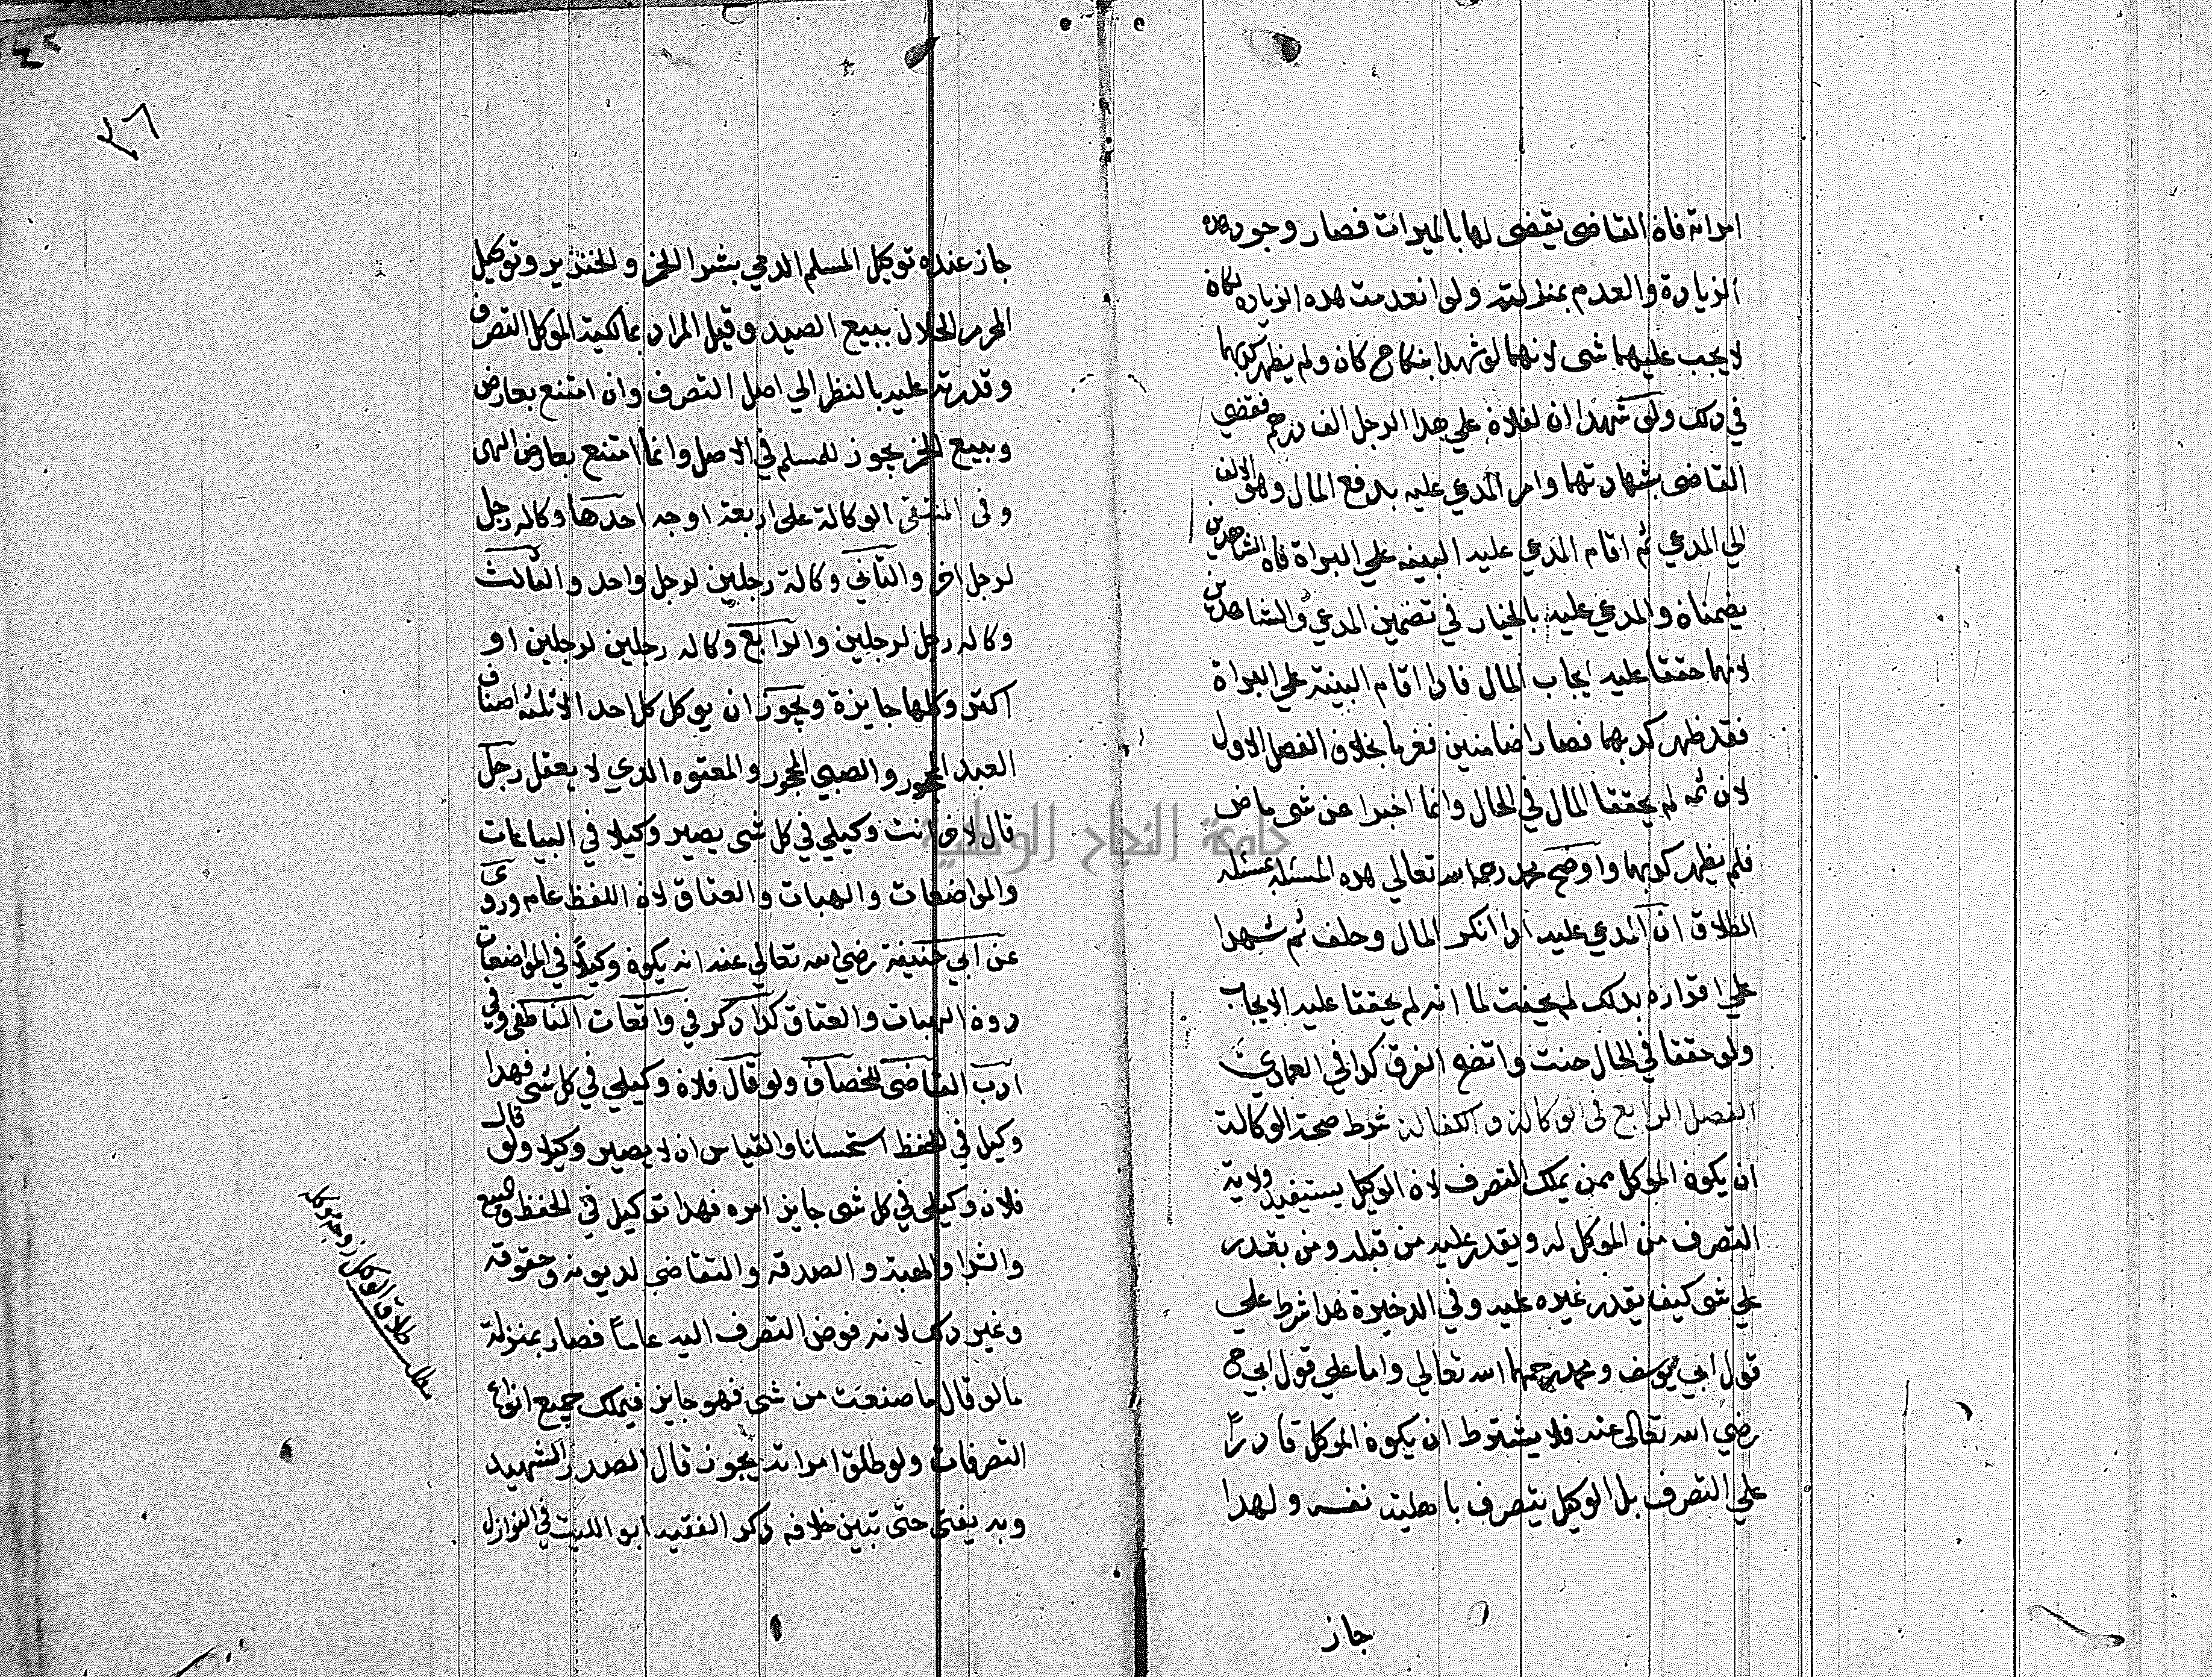 امراته فان القاضى يقضى لها بالميراث فصار وجود هذه
الزيادة والعدم بمنزلته ولو انعدمت هذه الزيادة لكان
لا يجب عليهما شى لانهما لو شهدا بنكاح كان ولم يظهر كدبهما
في دلك ولو شهدا ان لفلان علي هدا الرجل الف درهم فقضي
القاضى بشهادتهما وامر المدعي عليه بدفع المال وهو الالف
الي المدعي ثم اقام المدعي عليه البينه علي البراة فان الشاهدين
يضمنان والمدعي عليه بالخيار في تضمين المدعي والشاهدين
لانهما حققا عليه ايجاب المال فادا اقام البينة علي البراة
فقد ظهر كدبهما فصارا ضامنين فغرما بخلاف الفصل الاول
لان ثمه لم يحققا المال في الحال وانما اخبرا عن شى ماض
فلم يظهر كدبهما واوضح محمد رحمه الله تعالي هده المسئلة بمسئلة
الطلاق ان المدعي عليه ادا انكر المال وحلف ثم شهدا
علي اقراره بدلك لم يحنت لما انه لم يحققا عليه الايجاب
ولو حققا في الحال حنت واتضح الفرق كدا في العمادي
الفصل الرابع فى الوكالة والكفالة شرط صحة الوكالة
ان يكون الموكل ممن يملك التصرف لان الوكيل يستفيد ولاية
التصرف من الموكل له ويقدر عليه من قبله ومن يقدر
علي شى كيف يقدر غيره عليه وفي الدخيرة هدا شرط علي
قول ابي يوسف ومحمد رحمهما الله تعالي واما علي قول ابي ح
رضي الله تعالى عنه فلا يشترط ان يكون الموكل قادرًا
علي التصرف بل الوكيل يتصرف باهلية نفسه ولهدا
جاز
٢٦
جاز عنده توكيل المسلم الدمي بشرا الخمر والخنزير وتوكيل
المحرم الحلال ببيع الصيد وقيل المراد بمالكية الموكل التصرف
وقدرته عليه بالنظر الي اصل التصرف وان امتنع بعارض
وببيع الخمر يجوز للمسلم في الاصل وانما امتنع بعارض النهى
وفى المنتقى الوكالة على اربعة اوجه احدها وكاله رجل
لرجل اخر والثاني وكالة رجلين لرجل واحد والثالث
وكاله رجل لرجلين والرابع وكاله رجلين لرجلين او
اكثر وكلها جايزة ويجوز ان يوكل كل احد الا ثلثه اصناف
العبد المحجور والصبي المحجور والمعتوه الدي لا يعقل رجل
قال لاخر انت وكيلي في كل شى يصير وكيلا في البياعات
والمواضعات والهبات والعتاق لان اللفظ عام وروى
عن ابي حنيفة رضي الله تعالي عنه انه يكون وكيلًا في المواضعات
دون الهبات والعتاق كدا دكر في واقعات الناطفى وفي
ادب القاضى للخصاف ولو قال فلان وكيلي في كل شى فهدا
وكيل في الحفظ استحسانا والقياس ان لا يصير وكيلا ولو قال
فلان وكيلى في كل شى جايز امره فهدا توكيل في الحفظ والبيع
والشرا والهبة والصدقه والتقاضي لديونه وحقوقه
وغير دلك لانه فوض التصرف اليه عامًا فصار بمنزلة
مالو قال ما صنعت من شى فهو جايز فيملك جميع انواع
التصرفات ولو طلق امراته يجوز قال الصدر الشهيد
وبه يفتى حتى تبين خلافه دكر الفقيه ابو الليث في النوازل
مطلب طلاق الوكيل زوجة موكله
جامعة النجاح الوطنية